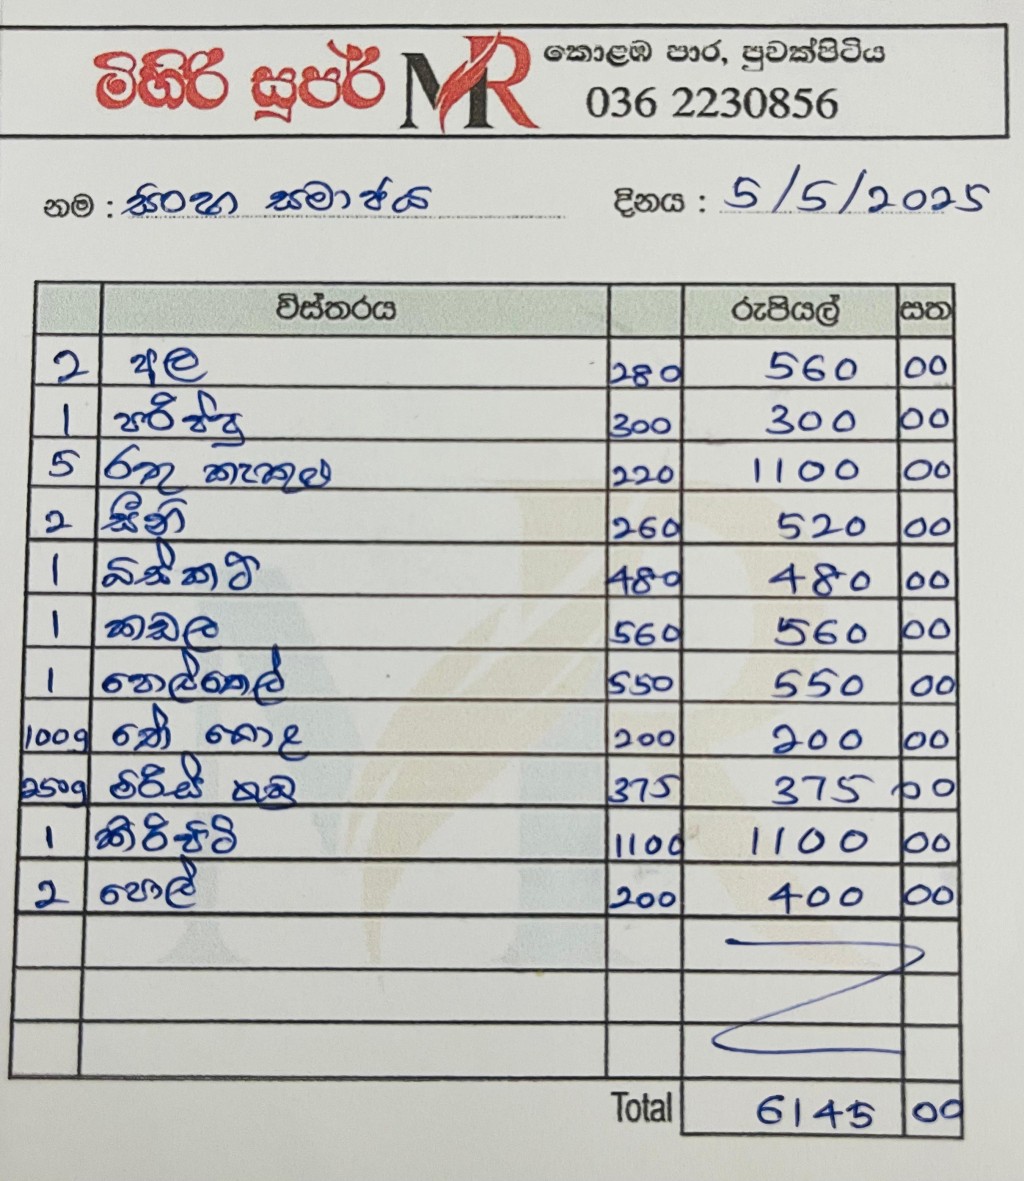 මිහිරි සුපර් MR කොළඹ පාර, පුවක්පිටිය
036 2230856
නම : සිංහ සමාජය දිනය : 5/5/2025
විස්තරය රුපියල් සත
2 අල 280 560 00
1 පරිප්පු 300 300 00
5 රතු කැකුළු 220 1100 00
2 සීනි 260 520 00
1 බිස්කට් 480 480 00
1 කඩල 560 560 00
1 පොල්තෙල් 550 550 00
100g තේ කොල 200 200 00
250g මිරිස් කුඩු 375 375 00
1 කිරිපිටි 1100 1100 00
2 පොල් 200 400 00
Total 6145 00